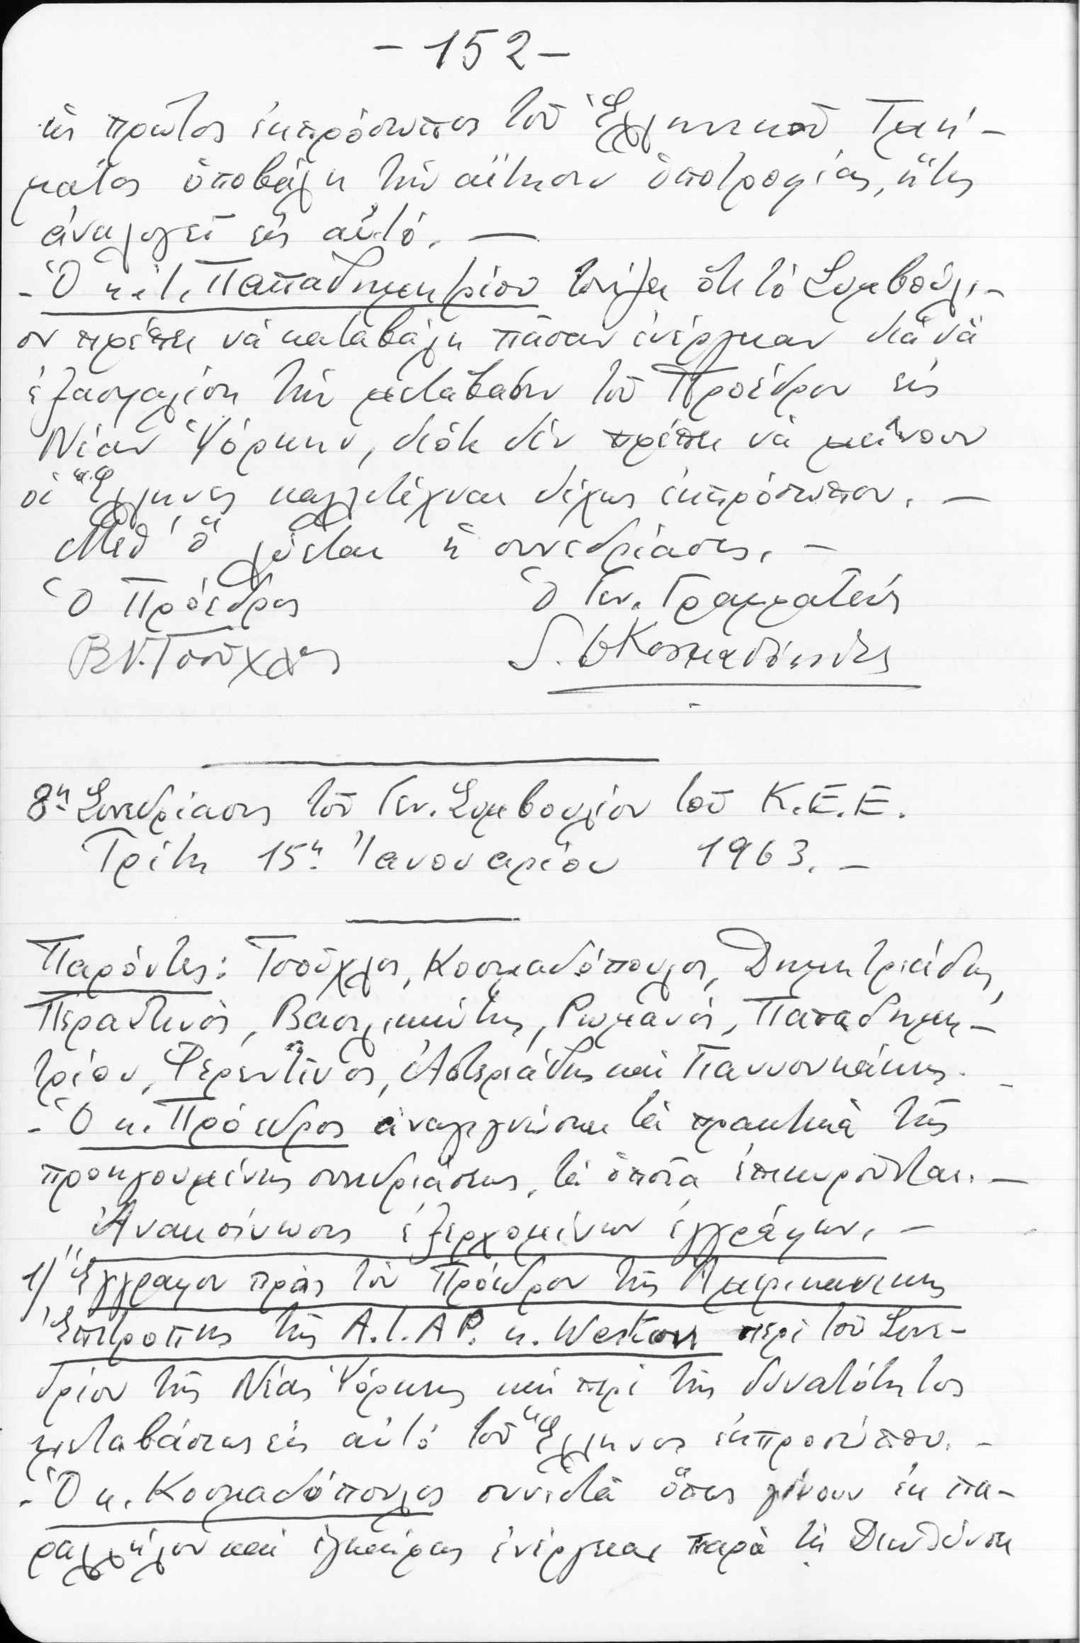 - 152 -
ὡς πρῶτος ἐκπρόσωπος τοῦ Ἑλληνικοῦ Τμή-
ματος ὑποβάλη τὴν αἴτησιν ὑποτροφίας, ἥτις
ἀναλογεῖ εἰς αὐτό. —
- Ὁ κ. Ι. Παπαδημητρίου τονίζει ὅτι τὸ Συμβούλι-
ον πρέπει νὰ καταβάλη πᾶσαν ἐνέργειαν διὰ νὰ
ἐξασφαλίση τὴν μετάβασιν τοῦ Προέδρου εἰς
Νέαν Ὑόρκην, διότι δὲν πρέπει νὰ μείνουν
οἱ Ἕλληνες καλλιτέχναι δίχως ἐκπρόσωπον. —
Μεθ' ὃ λύεται ἡ συνεδρίασις. —
Ὁ Πρόεδρος Ὁ Γεν. Γραμματεύς
Β.Ν. Τσοῦχλος Κοσμαδόπουλος
8η Συνεδρίασις τοῦ Γεν. Συμβουλίου τοῦ Κ.Ε.Ε.
Τρίτη 15η Ἰανουαρίου 1963. —
Παρόντες: Τσοῦχλος, Κοσμαδόπουλος, Δημητριάδης,
Περαντινὸς, Βασιλικιώτης, Ρωμανός, Παπαδημη-
τρίου, Φερεντῖνος, Ἀστεριάδης καὶ Γιαννουκάκης. -
- Ὁ κ. Πρόεδρος ἀναγιγνώσκει τὰ πρακτικὰ τῆς
προηγουμένης συνεδριάσεως, τὰ ὁποῖα ἐπικυροῦνται. —
Ἀνακοίνωσις ἐξερχομένων ἐγγράφων. —
1) Ἔγγραφον πρὸς τὸν Πρόεδρον τῆς Ἀμερικανικῆς
Ἐπιτροπῆς τῆς A.I.A.P. κ. Weston περὶ τοῦ Συνε-
δρίου τῆς Νέας Ὑόρκης καὶ περὶ τῆς δυνατότητος
μεταβάσεως εἰς αὐτὸ τοῦ Ἕλληνος ἐκπροσώπου. -
- Ὁ κ. Κοσμαδόπουλος συνιστᾶ ὅπως γίνουν ἐκ πα-
ραλλήλου καὶ ἔγκαιρες ἐνέργειαι παρὰ τῇ Διευθύνσει